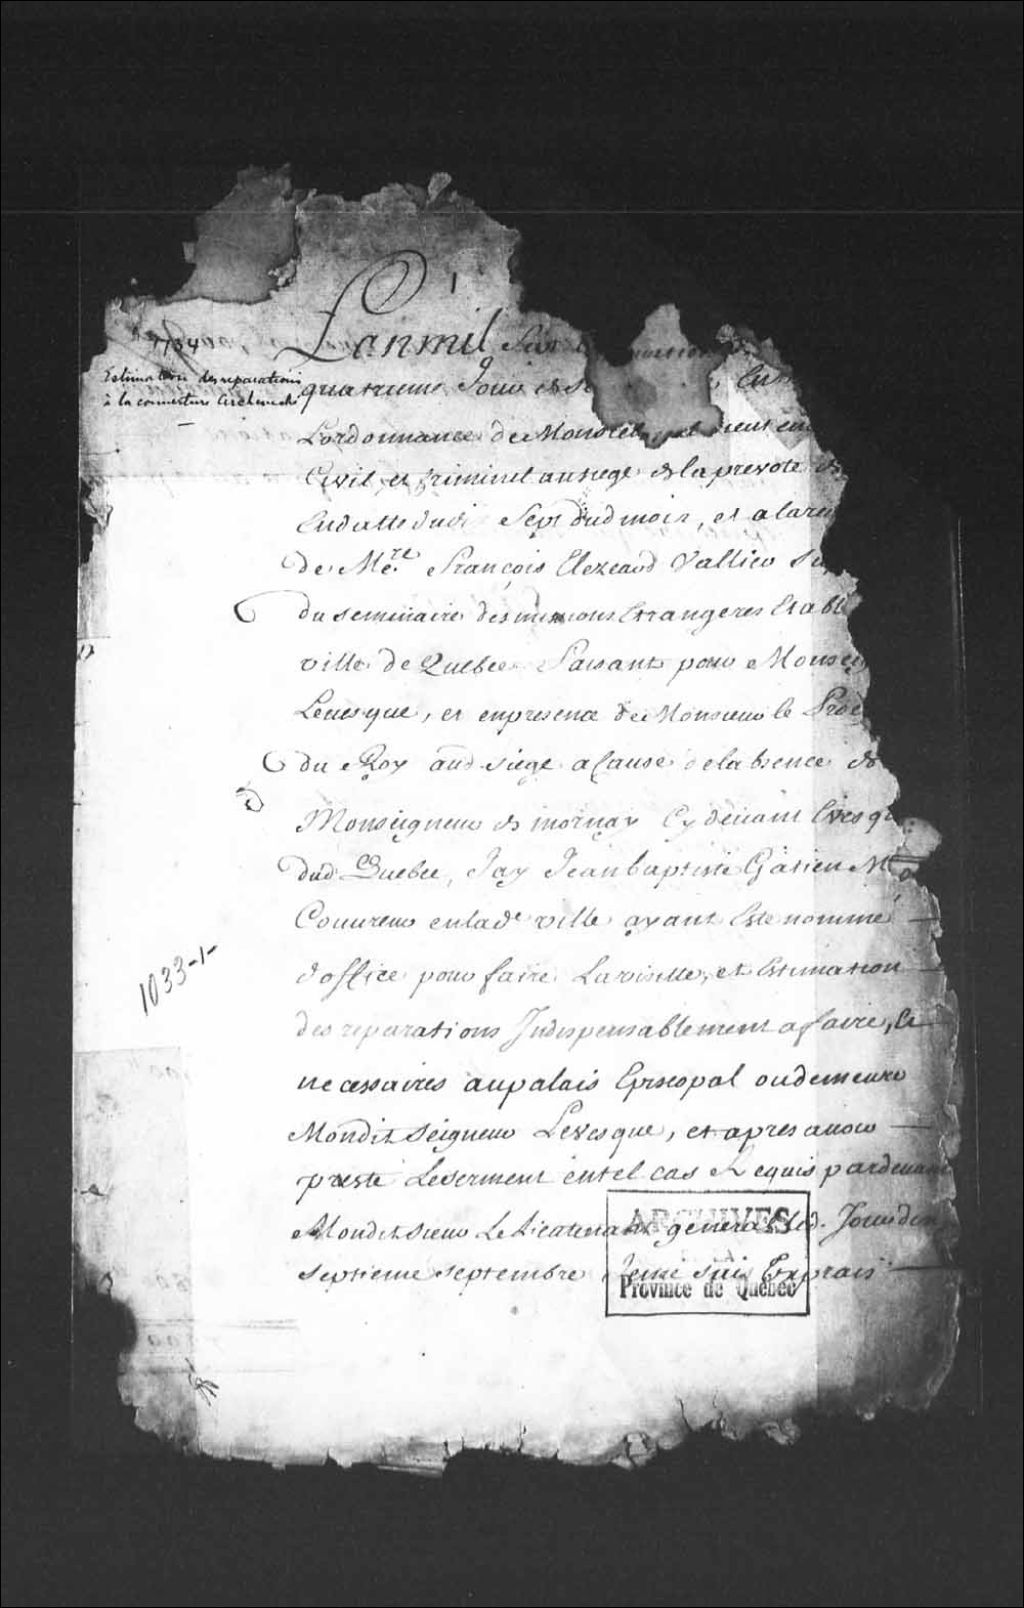 1
Lanmil Sept
1734
Estimation des reparations
à la couverture
quatrieme Jour
Lordonnance de Monsieur
Civil et Criminel ausiege de la prevoté de
Endatte dudi Sept dud mois, et a la
de Mere. François Elezeard Vallier Su
du seminaire des missions Etrangeres Etabl
ville de Quebec faisant pour Monseig
Levesque, et enpresence de Monsieur le Proc
du Roy aud siege a Cause delabsence de
Monseigneur de mornay Cy devant Evesq
dud Quebec, Jay Jean baptiste Gatien Me
Couvreur enlade ville ayant Esté nommé
doffice pour faire Lavisitte, et Estimation
1033-1-
des reparations Indispensablement afaire, &
necessaires aupalais Episcopal oudemeure
Mondit Seigneur Levesque, et apres avoir
presté Leserment entel cas Requis pardevant
Mondit sieur Le Lieutenant general led. Jour
septieme septembre Jeme suis Exprais
ARCHIVES
DE LA
Province de Québec